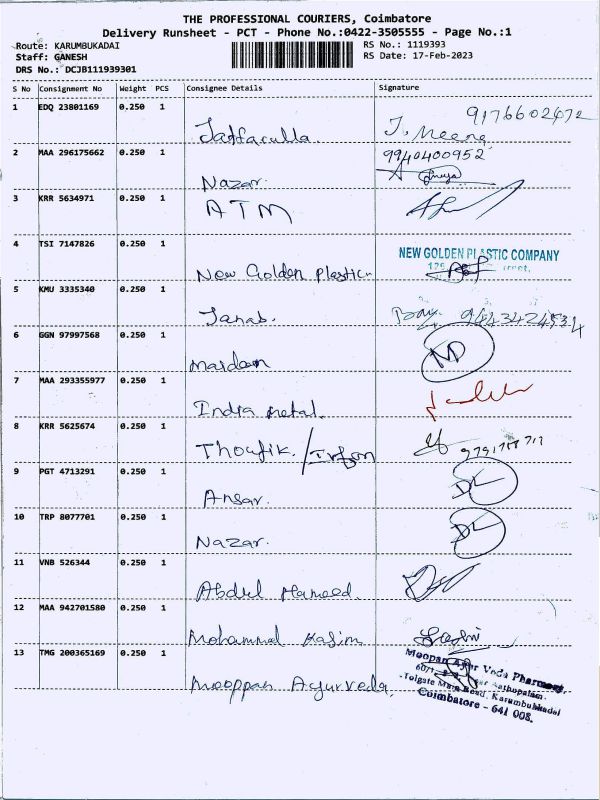 THE PROFESSIONAL COURIERS, Coimbatore
Delivery Runsheet - PCT - Phone No.:0422-3505555 - Page No.:1
Route: KARUMBUKADAI RS No.: 1119393
Staff: GANESH RS Date: 17-Feb-2023
DRS No.: DCJB111939301
S No Consignment No Weight PCS Consignee Details Signature
1 EDQ 23801169 0.250 1
Jaffarulla J. Meena 9176602672
2 MAA 296175662 0.250 1 9940400952
Nazar.
3 KRR 5634971 0.250 1
ATM
4 TSI 7147826 0.250 1
New Golden Plastic NEW GOLDEN PLASTIC COMPANY
5 KMU 3335340 0.250 1
Janab. 9443424934
6 GGN 97997568 0.250 1
Mardeen MD
7 MAA 293355977 0.250 1
India metal.
8 KRR 5625674 0.250 1
Thoufik. / Irfan
9 PGT 4713291 0.250 1
Ansar. DL
10 TRP 8077701 0.250 1
Nazar. DL
11 VNB 526344 0.250 1
Abdul Hameed.
12 MAA 942701580 0.250 1
Mohammal Kasim
13 TMG 200365169 0.250 1
Mooppan Ayurveda Moopan Ayur Veda Pharmacy,
-Tolgate Main Road, Karumbukkadai
Coimbatore - 641 008.